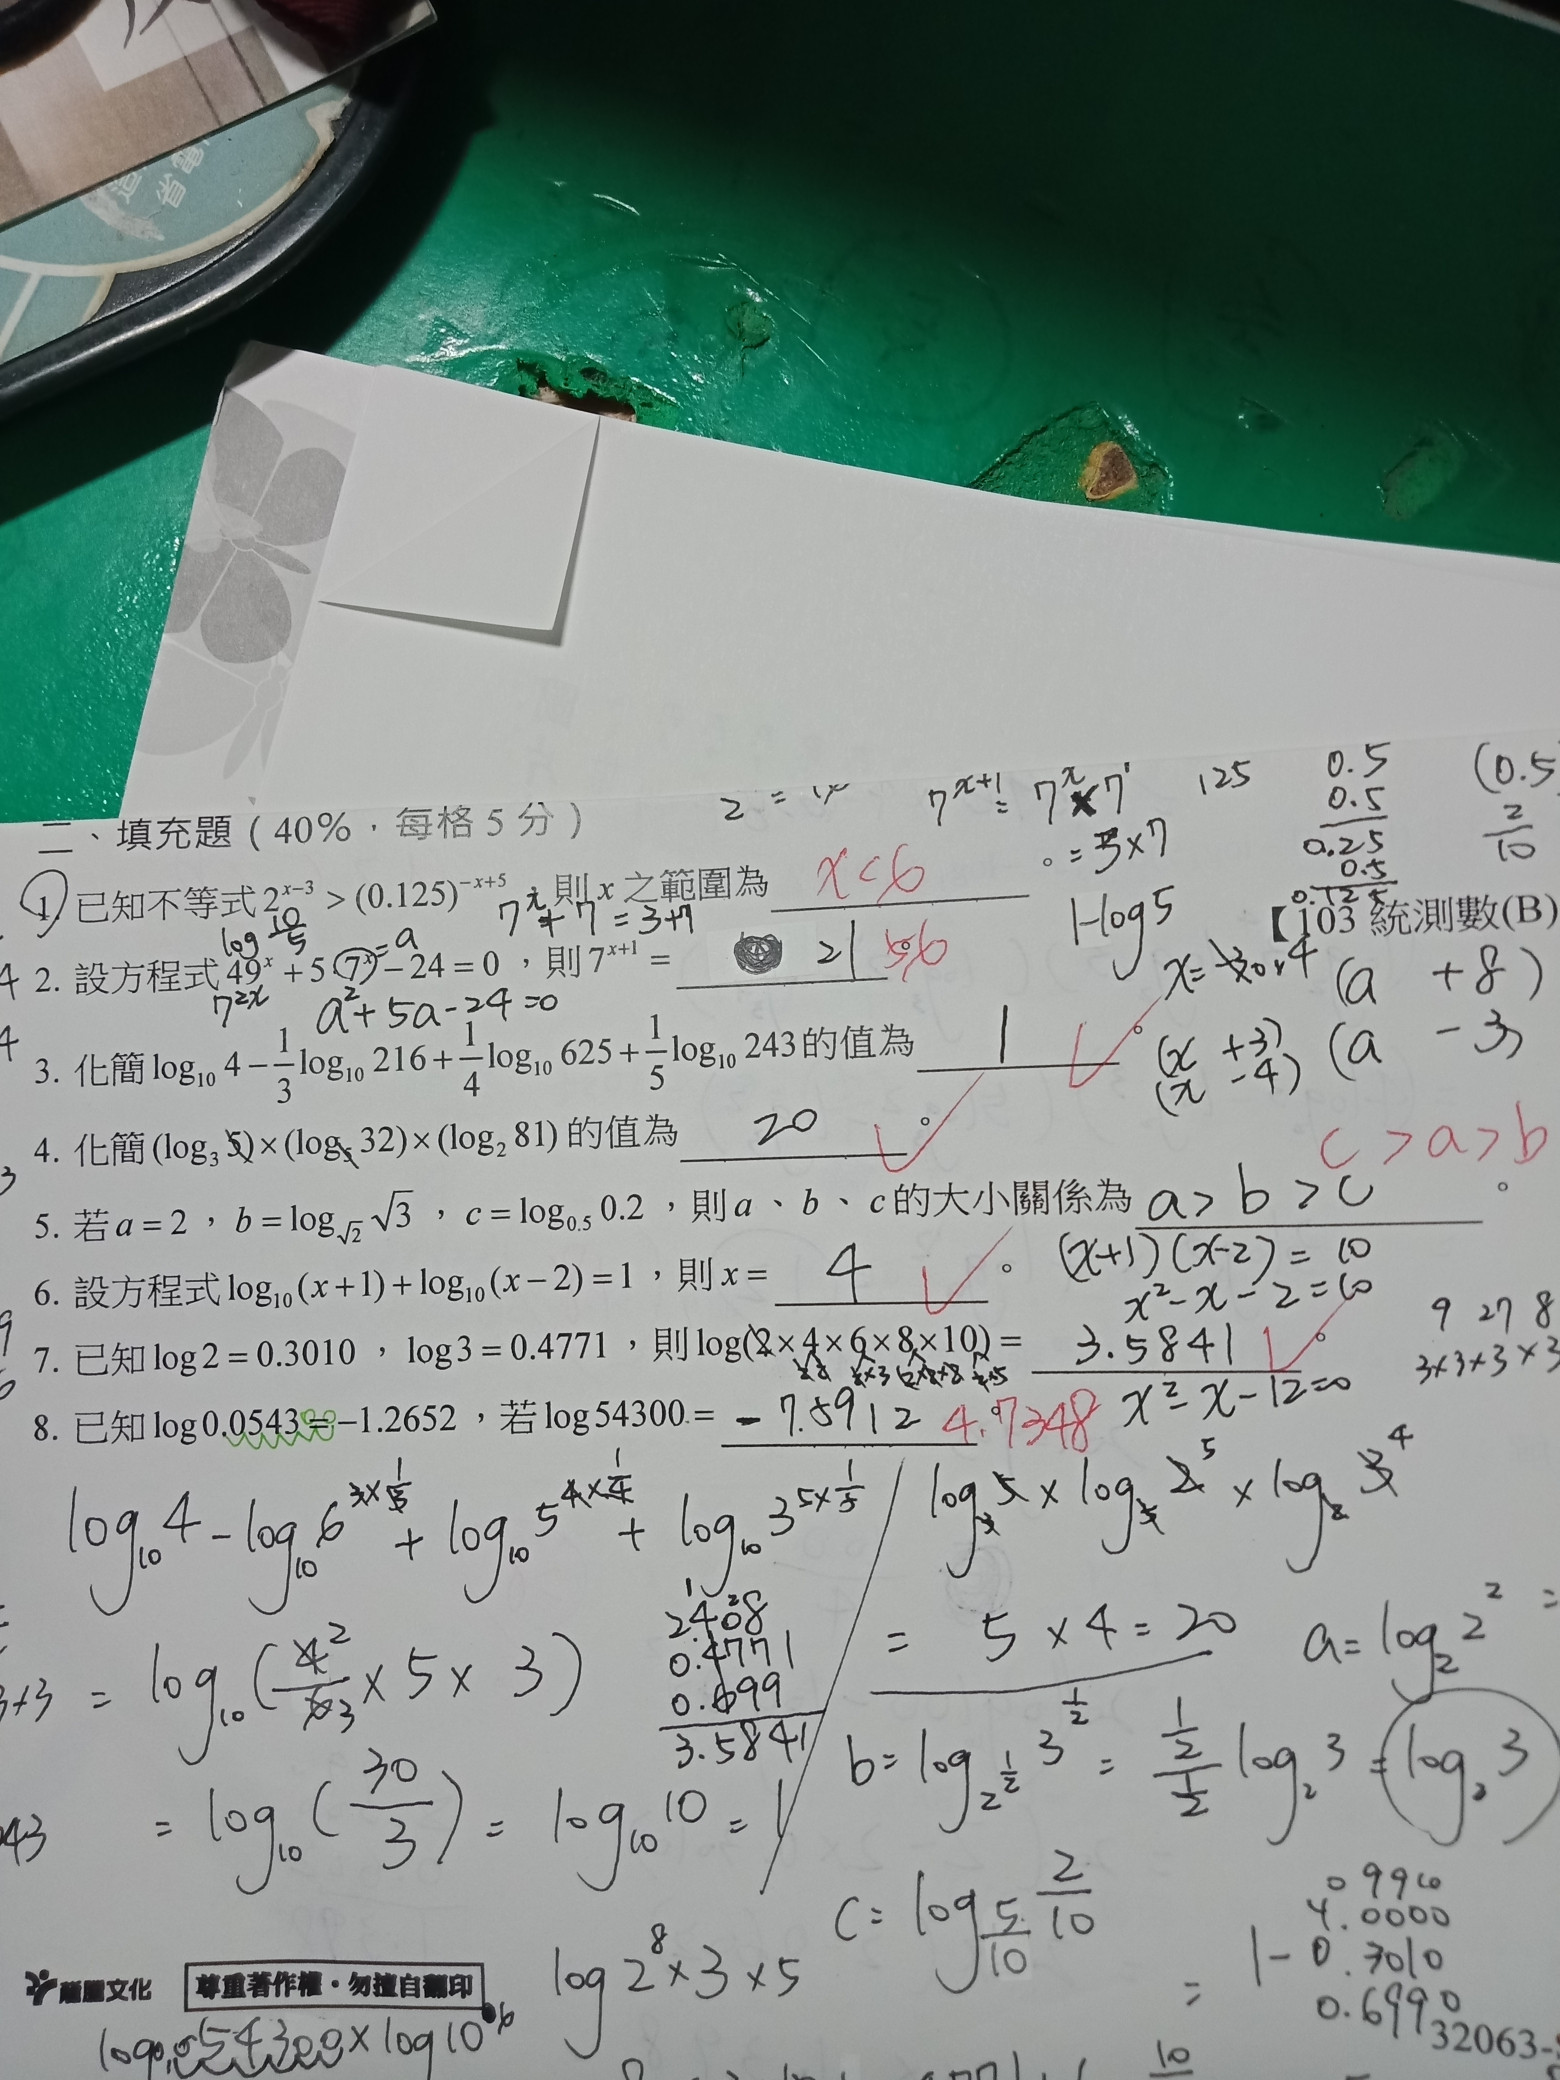 省電
7^{x+1} = 7^x × 7^1
= 3×7
125
0.5
0.5
0.25
0.5
0.125
(0.5
2/10
二、填充題(40%,每格5分)
1. 已知不等式 2^{x-3} > (0.125)^{-x+5},則 x 之範圍為 x<6 。
【103 統測數(B)
log 10/5
7^x + 7 = 3+7
1-log5
2. 設方程式 49^x + 5(7^x) - 24 = 0,則 7^{x+1} = 21 56 。
= a
7^{2x}
a^2+5a-24=0
(a +8)
(a -3)
3. 化簡 log_{10} 4 - 1/3 log_{10} 216 + 1/4 log_{10} 625 + 1/5 log_{10} 243 的值為 1 。
(x +3)
(x -4)
4. 化簡 (log_3 5)×(log_5 32)×(log_2 81) 的值為 20 。
c > a > b
5. 若 a = 2,b = log_{√2} √3,c = log_{0.5} 0.2,則 a、b、c 的大小關係為 a > b > c 。
6. 設方程式 log_{10}(x+1) + log_{10}(x-2) = 1,則 x = 4 。
(x+1)(x-2) = 10
x^2-x-2=10
9 27 8
3×3×3×3
7. 已知 log 2 = 0.3010,log 3 = 0.4771,則 log(2×4×6×8×10) = 3.5841 。
x^2-x-12=0
8. 已知 log 0.0543 = -1.2652,若 log 54300 = -7.5912 4.7348 。
log_{10}4 - log_{10}6^{3×1/3} + log_{10}5^{4×1/4} + log_{10}3^{5×1/5}
log_3 5 × log_5 2^5 × log_2 3^4
= log_{10}(4^2/6 3 × 5 × 3)
2.408
0.4771
0.699
3.5841
= 5×4=20
a= log_2 2^2 =
= log_{10}(30/3) = log_{10}10 = 1
b= log_{2^{1/2}} 3^{1/2} = (1/2)/(1/2) log_2 3 = log_2 3
c= log_{5/10} 2/10
log 2^8×3×5
4.0000
1-0.3010
= 0.6990
龍騰文化
尊重著作權・勿擅自翻印
32063-